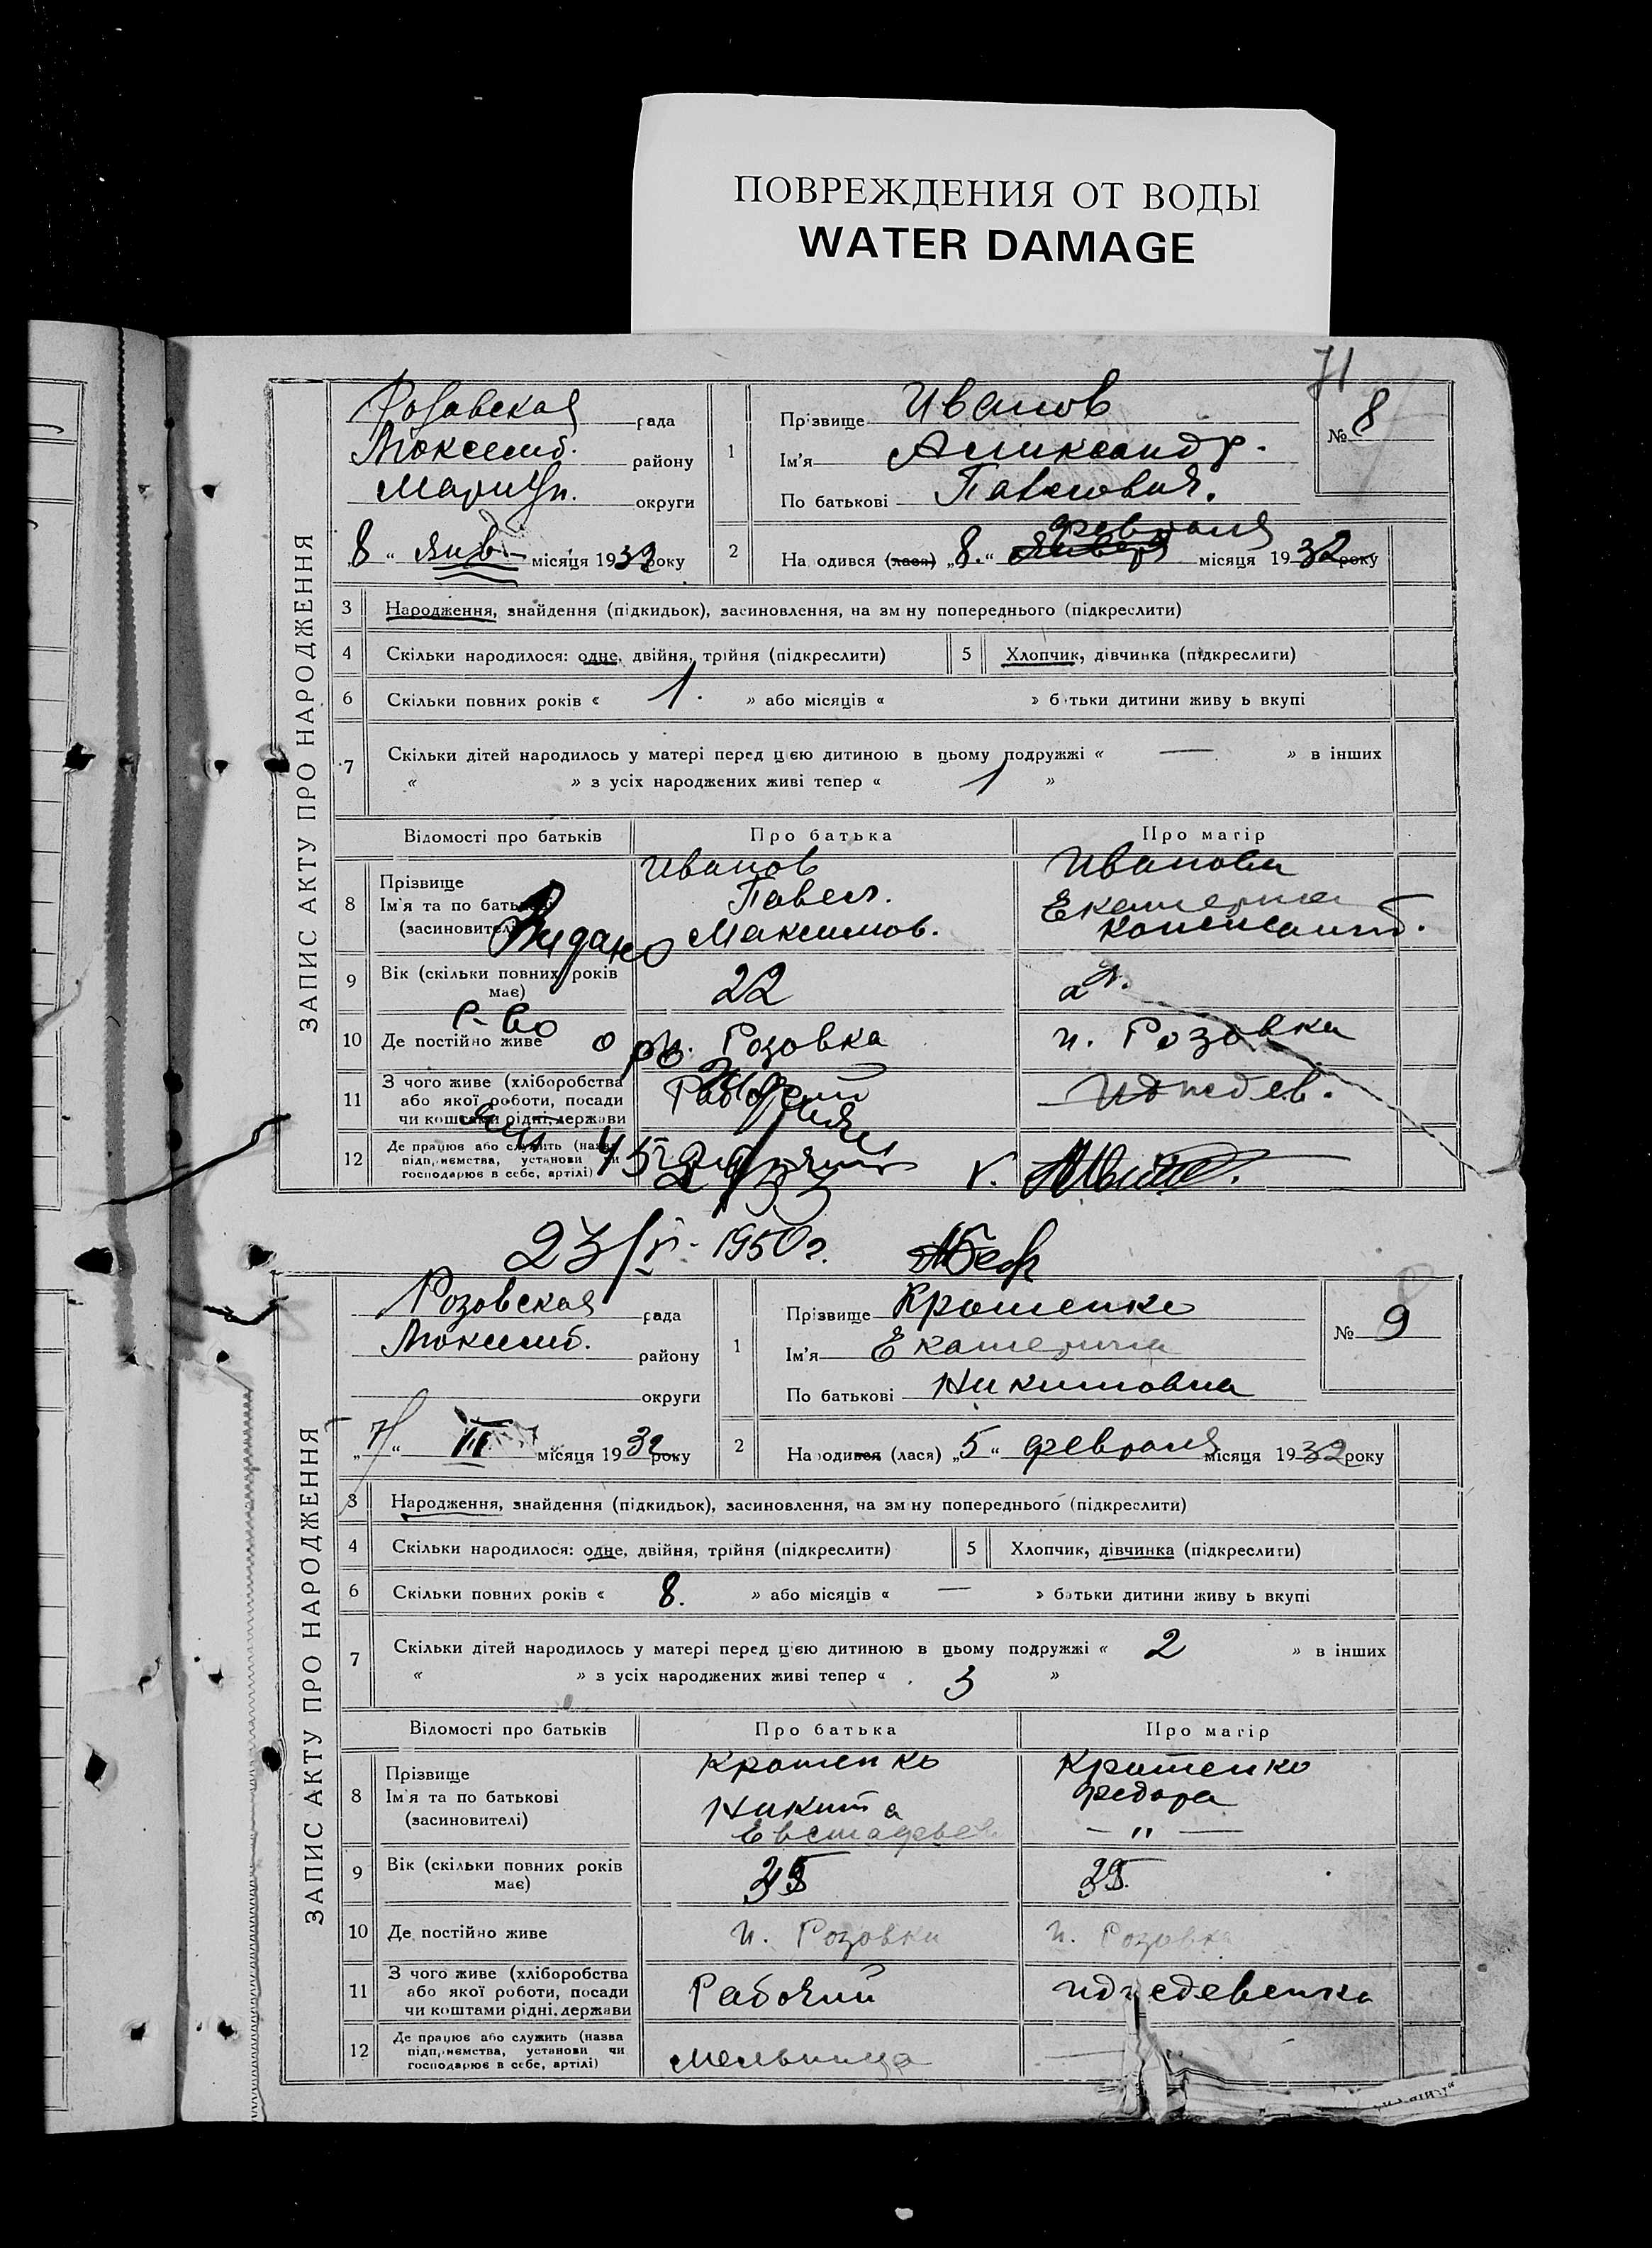 ПОВРЕЖДЕНИЯ ОТ ВОДЫ
WATER DAMAGE
71
ЗАПИС АКТУ ПРО НАРОДЖЕННЯ
Розовская рада
району
Мариуп. округи
„8“ янв місяця 1933 року
1 Прізвище Иванов
Ім’я Александр.
По батькові Павлович.
№ 8
2 На одився (лася) „8.“ января февраля місяця 1932 року
3 Народження, знайдення (підкидьок), засиновлення, на зм ну попереднього (підкреслити)
4 Скільки народилося: одне, двійня, трійня (підкреслити) 5 Хлопчик, дівчинка (підкреслити)
6 Скільки повних років « 1. » або місяців « » б тьки дитини живу ь вкупі
7 Скільки дітей народилось у матері перед цією дитиною в цьому подружжі « — » в інших
« » з усіх народжених живі тепер « 1 »
Відомості про батьків Про батька Про матір
8 Прізвище Иванов Иванова
Ім’я та по батькові Павел. Екатерина
(засновителі) Видано Максимов. Констант.
9 Вік (скільки повних років має) 22
С-во
10 Де постійно живе о рож п. Розовка п. Розовка
11 З чого живе (хліборобства Рабочий Иждев.
або якої роботи, посади
чи коштами рідні, держави
12 Де працює або служить (назва
підприємства, установи чи
господарює в себе, артілі)
23/V - 1950г.
ЗАПИС АКТУ ПРО НАРОДЖЕННЯ
Розовская рада
району
округи
„7“ III місяця 1932 року
1 Прізвище Кратенко
Ім’я Екатерина
По батькові Никитовна
№ 9
2 Народився (лася) „5“ февраля місяця 1932 року
3 Народження, знайдення (підкидьок), засиновлення, на зм ну попереднього (підкреслити)
4 Скільки народилося: одне, двійня, трійня (підкреслити) 5 Хлопчик, дівчинка (підкреслити)
6 Скільки повних років « 8. » або місяців « — » батьки дитини живу ь вкупі
7 Скільки дітей народилось у матері перед цією дитиною в цьому подружжі « 2 » в інших
« » з усіх народжених живі тепер « 3 »
Відомості про батьків Про батька Про матір
8 Прізвище Кратенко Кратенко
Ім’я та по батькові Никита Федора
(засиновителі) — " —
9 Вік (скільки повних років має) 35 35.
10 Де постійно живе п. Розовка п. Розовка
11 З чого живе (хліборобства Рабочий иждевенка
або якої роботи, посади
чи коштами рідні, держави
12 Де працює або служить (назва мельница —
підприємства, установи чи
господарює в себе, артілі)